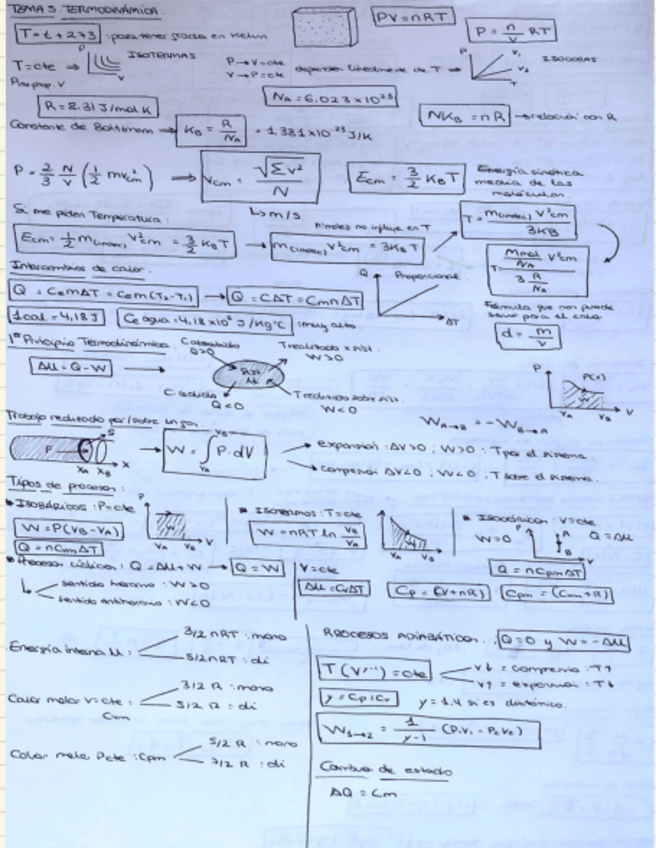 TEMA 5. TERMODINÁMICA.
PV=nRT
P = n/V RT
T = t + 273 : para tener grados en Kelvin
T=cte ⇒ P V ISOTERMAS
P → V=cte
V → P=cte dependen linealmente de T → P T V₁ V₂ ISOCORAS
P inv prop. V
R = 8.31 J/mol K
N_A = 6,023 × 10²³
N K_B = nR → relación con R
Constante de Boltzmann → K_B = R/N_A = 1,381×10⁻²³ J/K
P = 2/3 N/V (1/2 m v²cm) → Vcm = √Σv² / N
Ecm = 3/2 K_B T
Energía cinética media de las moléculas
↳ m/s
Si me piden Temperatura:
nº moles no influye en T
Ecm = 1/2 m(1molec) V²cm = 3/2 K_B T → m(1molec) V²cm = 3K_B T
T = m(1molec) V²cm / 3K_B
T = Mmol/N_A V²cm / 3 R/N_A
Intercambios de calor.
Q Proporcional ΔT
Q = Ce m ΔT = Ce m (T₂-T₁) → Q = CΔT = Cm n ΔT
1 cal = 4,18 J
Ce agua = 4,18×10³ J/Kg°C : muy alto.
Fórmula que nos puede servir para el calor
d = m/V
1º Principio Termodinámica.
ΔU = Q - W →
C absorbido Q>0
T realizado x sist. W>0
C cedido Q<0
T realizado sobre sist. W<0
P P(V) W V_A V_B V
W A→B = - W B→A
Trabajo realizado por/sobre un gas
P S X_A X_B X → W = ∫ V_A V_B P·dV
→ expansión : ΔV>0 ; W>0 : T por el sistema.
→ compresión : ΔV<0 ; W<0 ; T sobre el sistema.
Tipos de procesos :
• ISOBÁRICOS : P=cte
W = P(V_B - V_A)
Q = nCpmΔT
• ISOTERMOS : T=cte
W = nRT ln V_B/V_A
• ISOCÓRICOS : V=cte
W=0 Q = ΔU
Q = nCpmΔT
• Procesos cíclicos : Q = ΔU + W → Q = W
↳ sentido horario : W>0
sentido antihorario : W<0
V=cte
ΔU = CvΔT
Cp = (Cv+nR)
Cpm = (Cvm+R)
Energía interna U : 3/2 nRT : mono
5/2 nRT : di
Calor molar V=cte : Cvm
3/2 R : mono
5/2 R : di
Calor molar Pcte : Cpm
5/2 R : mono
7/2 R : di
PROCESOS ADIABÁTICOS : Q=0 y W=-ΔU
T(Vγ-1) = cte
V↓ = compresión : T↑
V↑ = expansión : T↓
γ = Cp/Cv
γ = 1,4 si es diatómico.
W 1→2 = 1/γ-1 (P₁V₁ - P₂V₂)
Cambio de estado
ΔQ = Lm